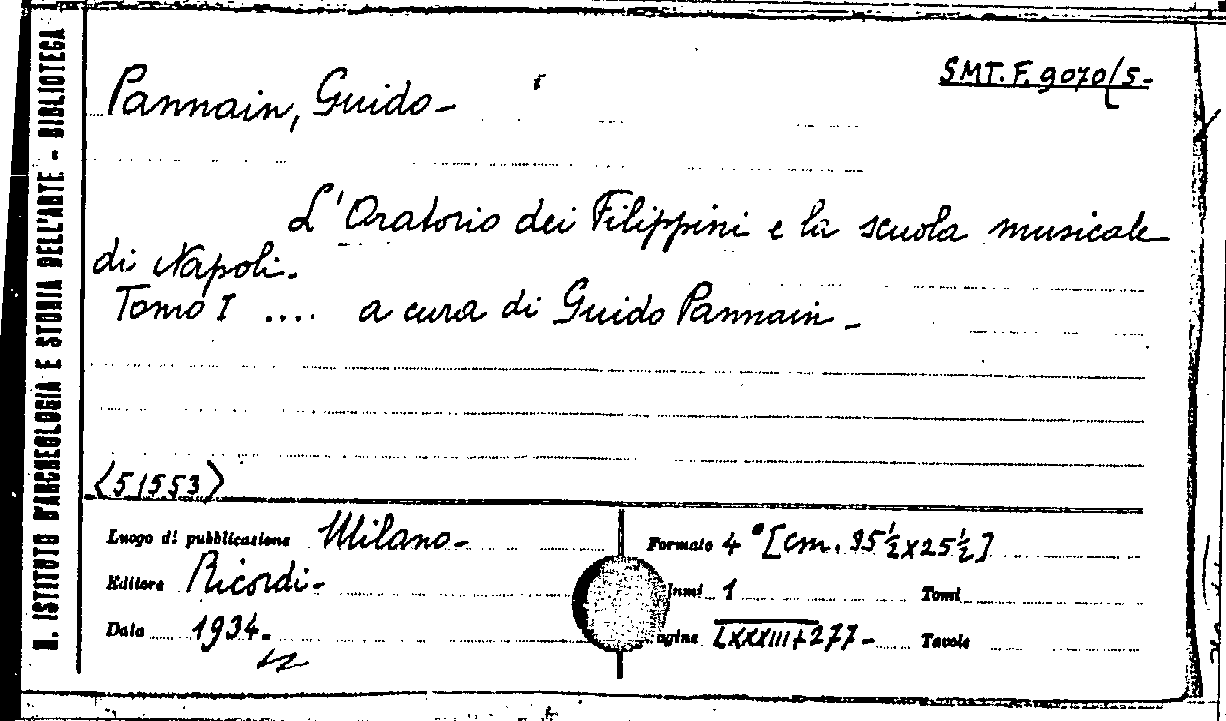 R. ISTITUTO D'ARCHEOLOGIA E STORIA DELL'ARTE - BIBLIOTECA
SMT. F. 9070/5-
Pannain, Guido-
L'Oratorio dei Filippini e la scuola musicale
di Napoli.
Tomo I .... a cura di Guido Pannain-
<51553>
Luogo di pubblicazione Milano-
Editore Ricordi-
Data 1934.
Formato 4° [cm. 35½x25½]
1 Tomi
LXXXIII+277- Tavole